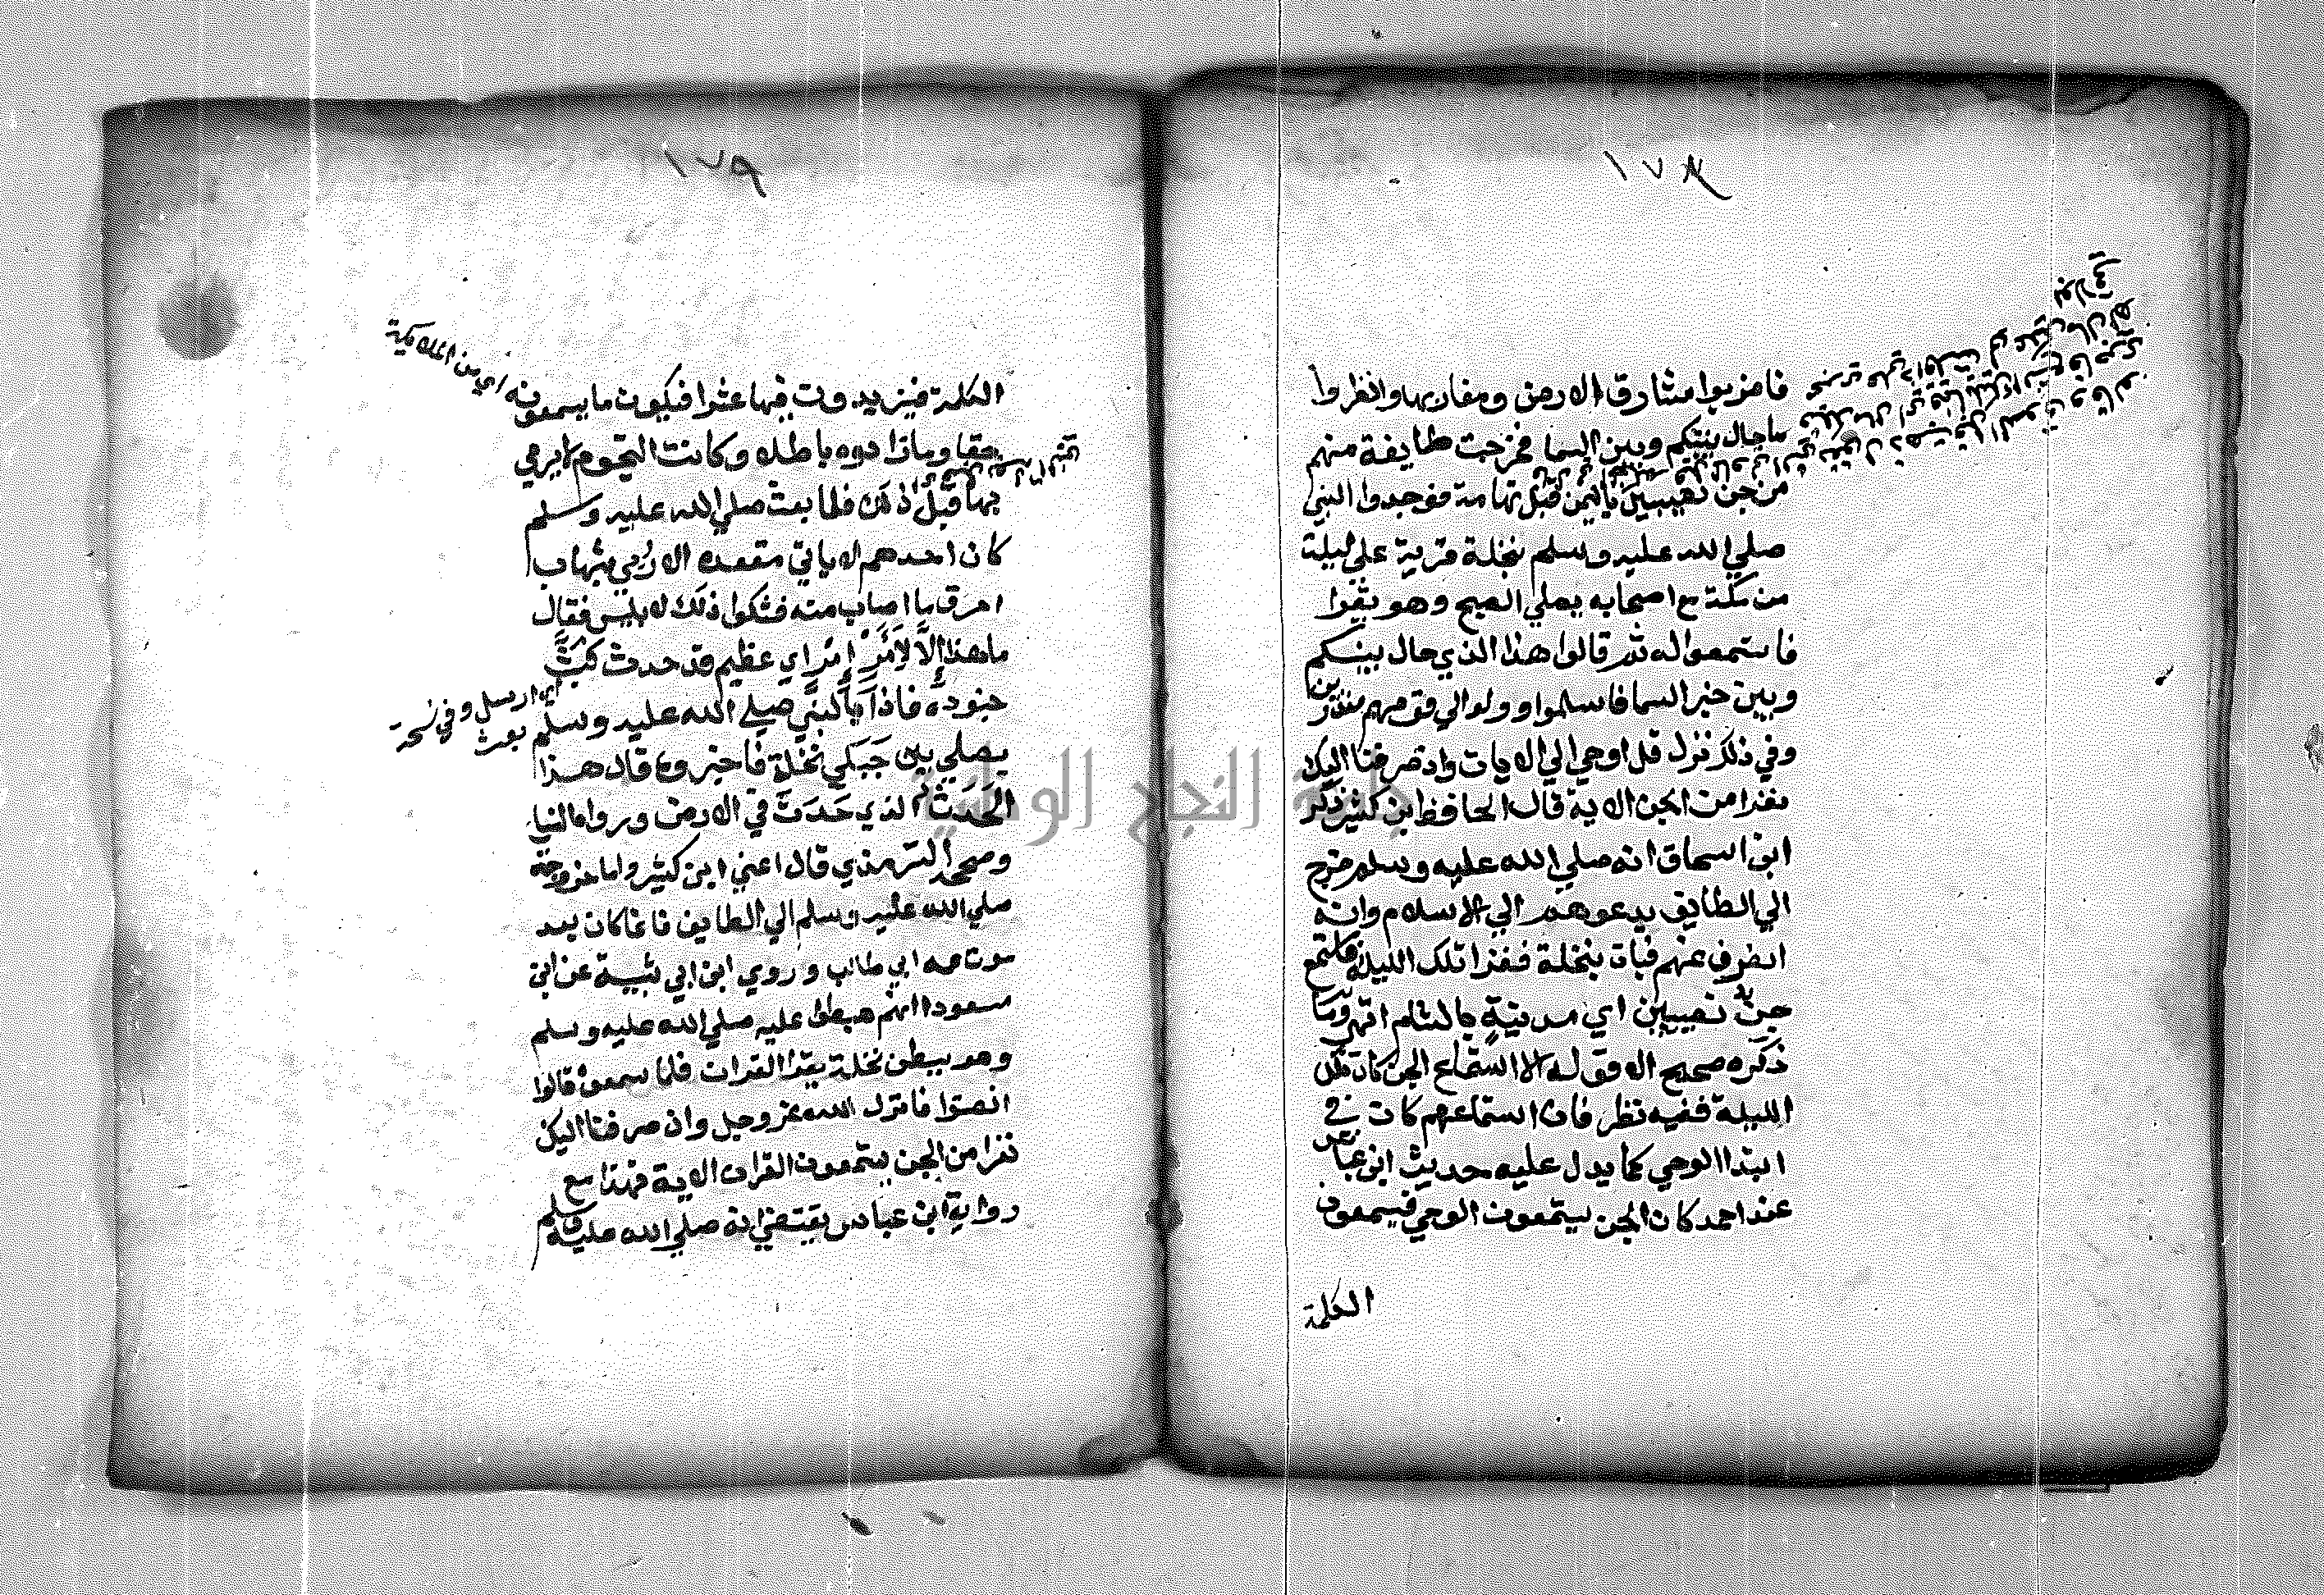 ١٧٨
فاضربوا مشارق الارض ومغاربها وانظروا
ما حال بينكم وبين السما فخرجت طايفة منهم
من جن نصيبين باليمن قبل تهامة فوجدوا النبي
صلي الله عليه وسلم بنخلة قرية علي ليلة
من مكة مع اصحابه يصلي الصبح وهو يقرا
فاستمعوا له ثم قالوا هذا الذي حال بينكم
وبين خبر السما فاسلموا وولوا الي قومهم منذرين
وفي ذلك نزل قل اوحي الي الايات واذ صرفنا اليك
نفرا من الجن الاية قال الحافظ ابن كثير ذكر
ابن اسحاق انه صلي الله عليه وسلم خرج
الي الطايف يدعوهم الي الاسلام وانه
انصرف عنهم فبات بنخلة فقرا تلك الليلة فاستمع
جن نصيبين اي مدينة بالشام انتهي وما
ذكره صحيح الا قوله الا استماع الجن كان تلك
الليلة ففيه نظر فان استماعهم كان في
ابتدا الوحي كما يدل عليه حديث ابن عباس
عند احمد كان الجن يستمعون الوحي فيسمعون
الكلمة
١٧٩
الكلمة فيزيدون فيها عشرا فيكون ما يسمعونه
حقا وما زادوه باطلا وكانت النجوم لا يرمي
بها قبل ذلك فلما بعث صلي الله عليه وسلم
كان احدهم لا ياتي مقعده الا رمي بشهاب
احرق ما اصاب منه فشكوا ذلك لابليس فقال
ما هذا إلا لأمر إمر اي عظيم قد حدث فبث
جنوده فاذا بالنبي صلي الله عليه وسلم
اي ارسل وفي نسخة
بعث
يصلي بين جبلي نخلة فاخبروه قال هذا
الحدث الذي حدث في الارض ورواه النسائي
وصححه الترمذي قال اعني ابن كثير واما خروجه
صلي الله عليه وسلم الي الطايف فانما كان بعد
موت عمه ابي طالب وروي ابن ابي شيبة عن ابن
مسعود انهم هبطوا عليه صلي الله عليه وسلم
وهو ببطن نخلة يقرا القران فلما سمعوه قالوا
انصتوا فانزل الله عز وجل واذ صرفنا اليك
نفرا من الجن يستمعون القران الاية فهذا مع
رواية ابن عباس يقتضي انه صلي الله عليه وسلم